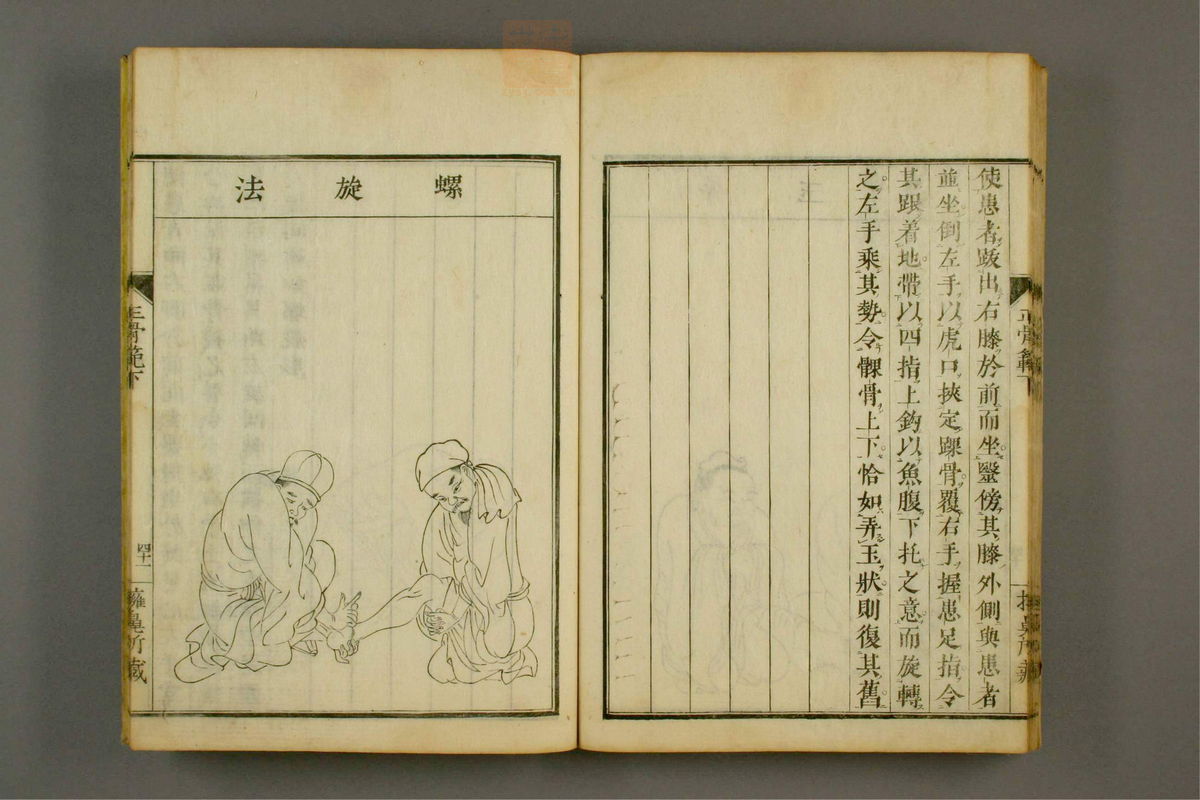 使患者跂出右膝於前而坐毉傍其膝外側與患者
並坐倒左手以虎口挾定踝骨覆右手握患足指令
其跟着地帶以四指上鈎以魚腹下托之意而旋轉
之左手乘其勢令髁骨上下恰如弄玉狀則復其舊
螺旋法
正骨範下
四十一